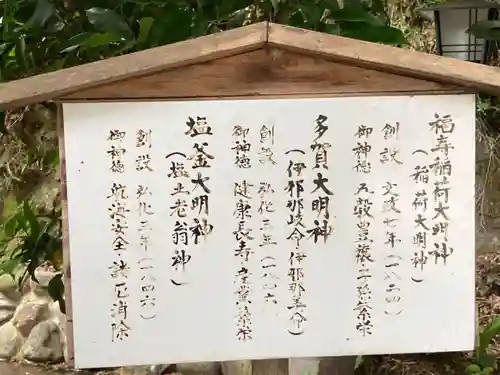 福寿稲荷大明神
(稲荷大明神)
創設 文政七年(一八二四)
御神徳 五穀豊穣・子孫繁栄
多賀大明神
(伊邪那岐命・伊邪那美命)
創設 弘化三年(一八四六)
御神徳 健康長寿・産業繁栄
塩釜大明神
(塩土老翁神)
創設 弘化三年(一八四六)
御神徳 航海安全・諸厄消除